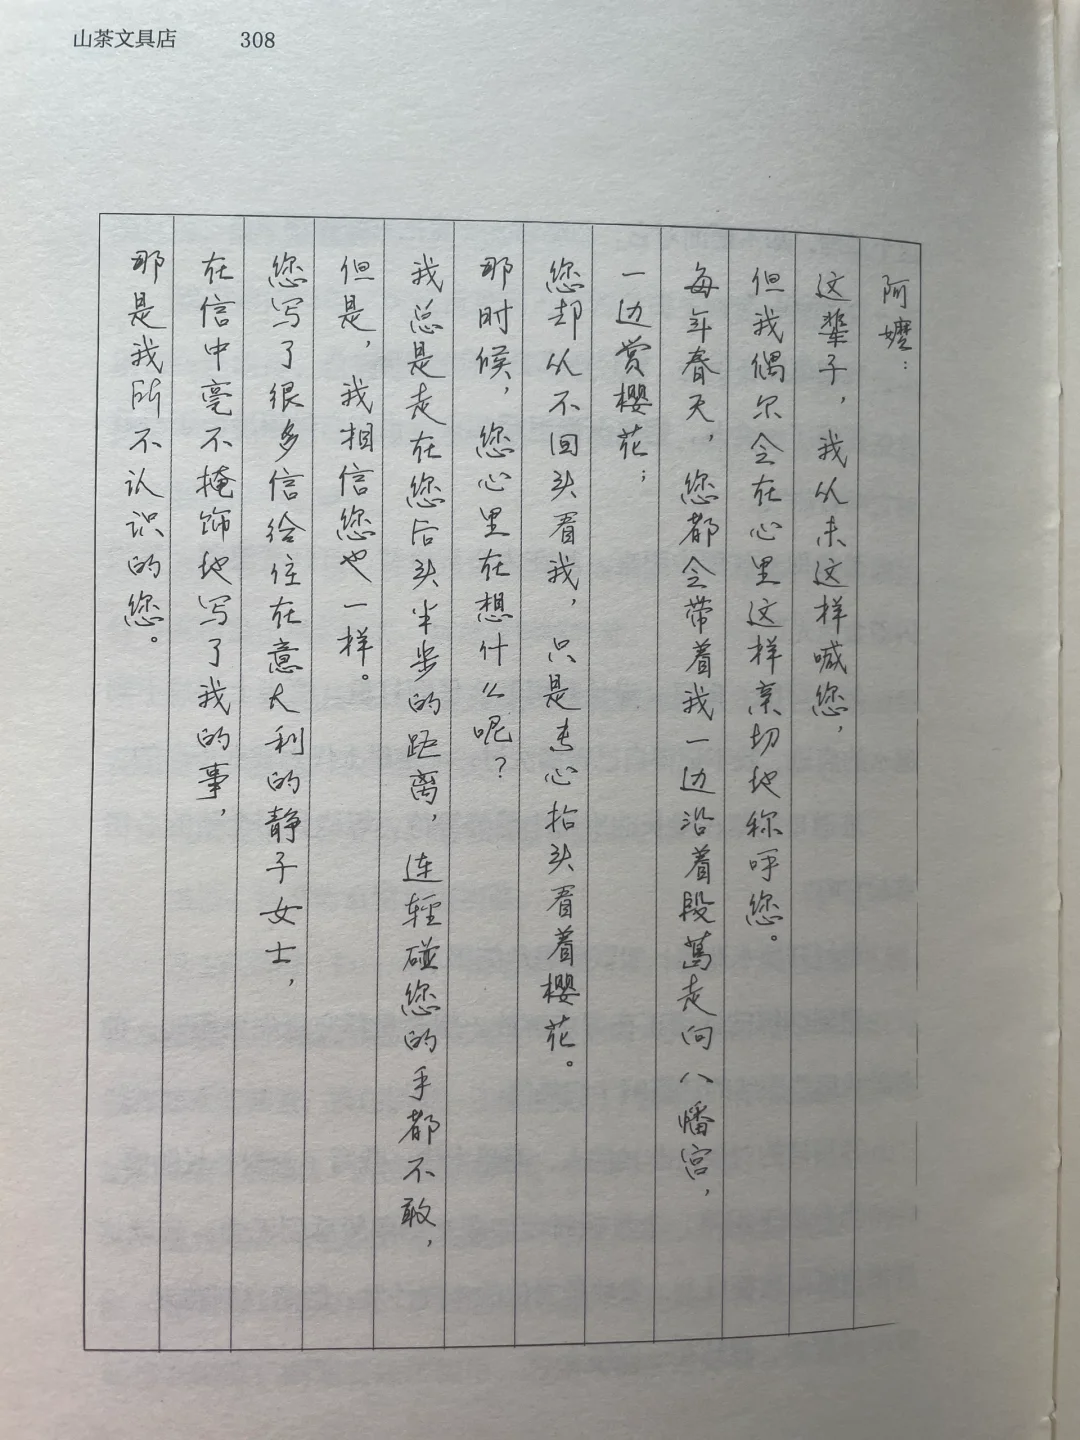 山茶文具店 308
阿嬷：
这辈子，我从未这样喊您，
但我偶尔会在心里这样亲切地称呼您。
每年春天，您都会带着我一边沿着段葛走向八幡宫，
一边赏樱花；
您却从不回头看我，只是专心抬头看着樱花。
那时候，您心里在想什么呢？
我总是走在您后头半步的距离，连轻碰您的手都不敢，
但是，我相信您也一样。
您写了很多信给住在意大利的静子女士，
在信中毫不掩饰地写了我的事，
那是我所不认识的您。